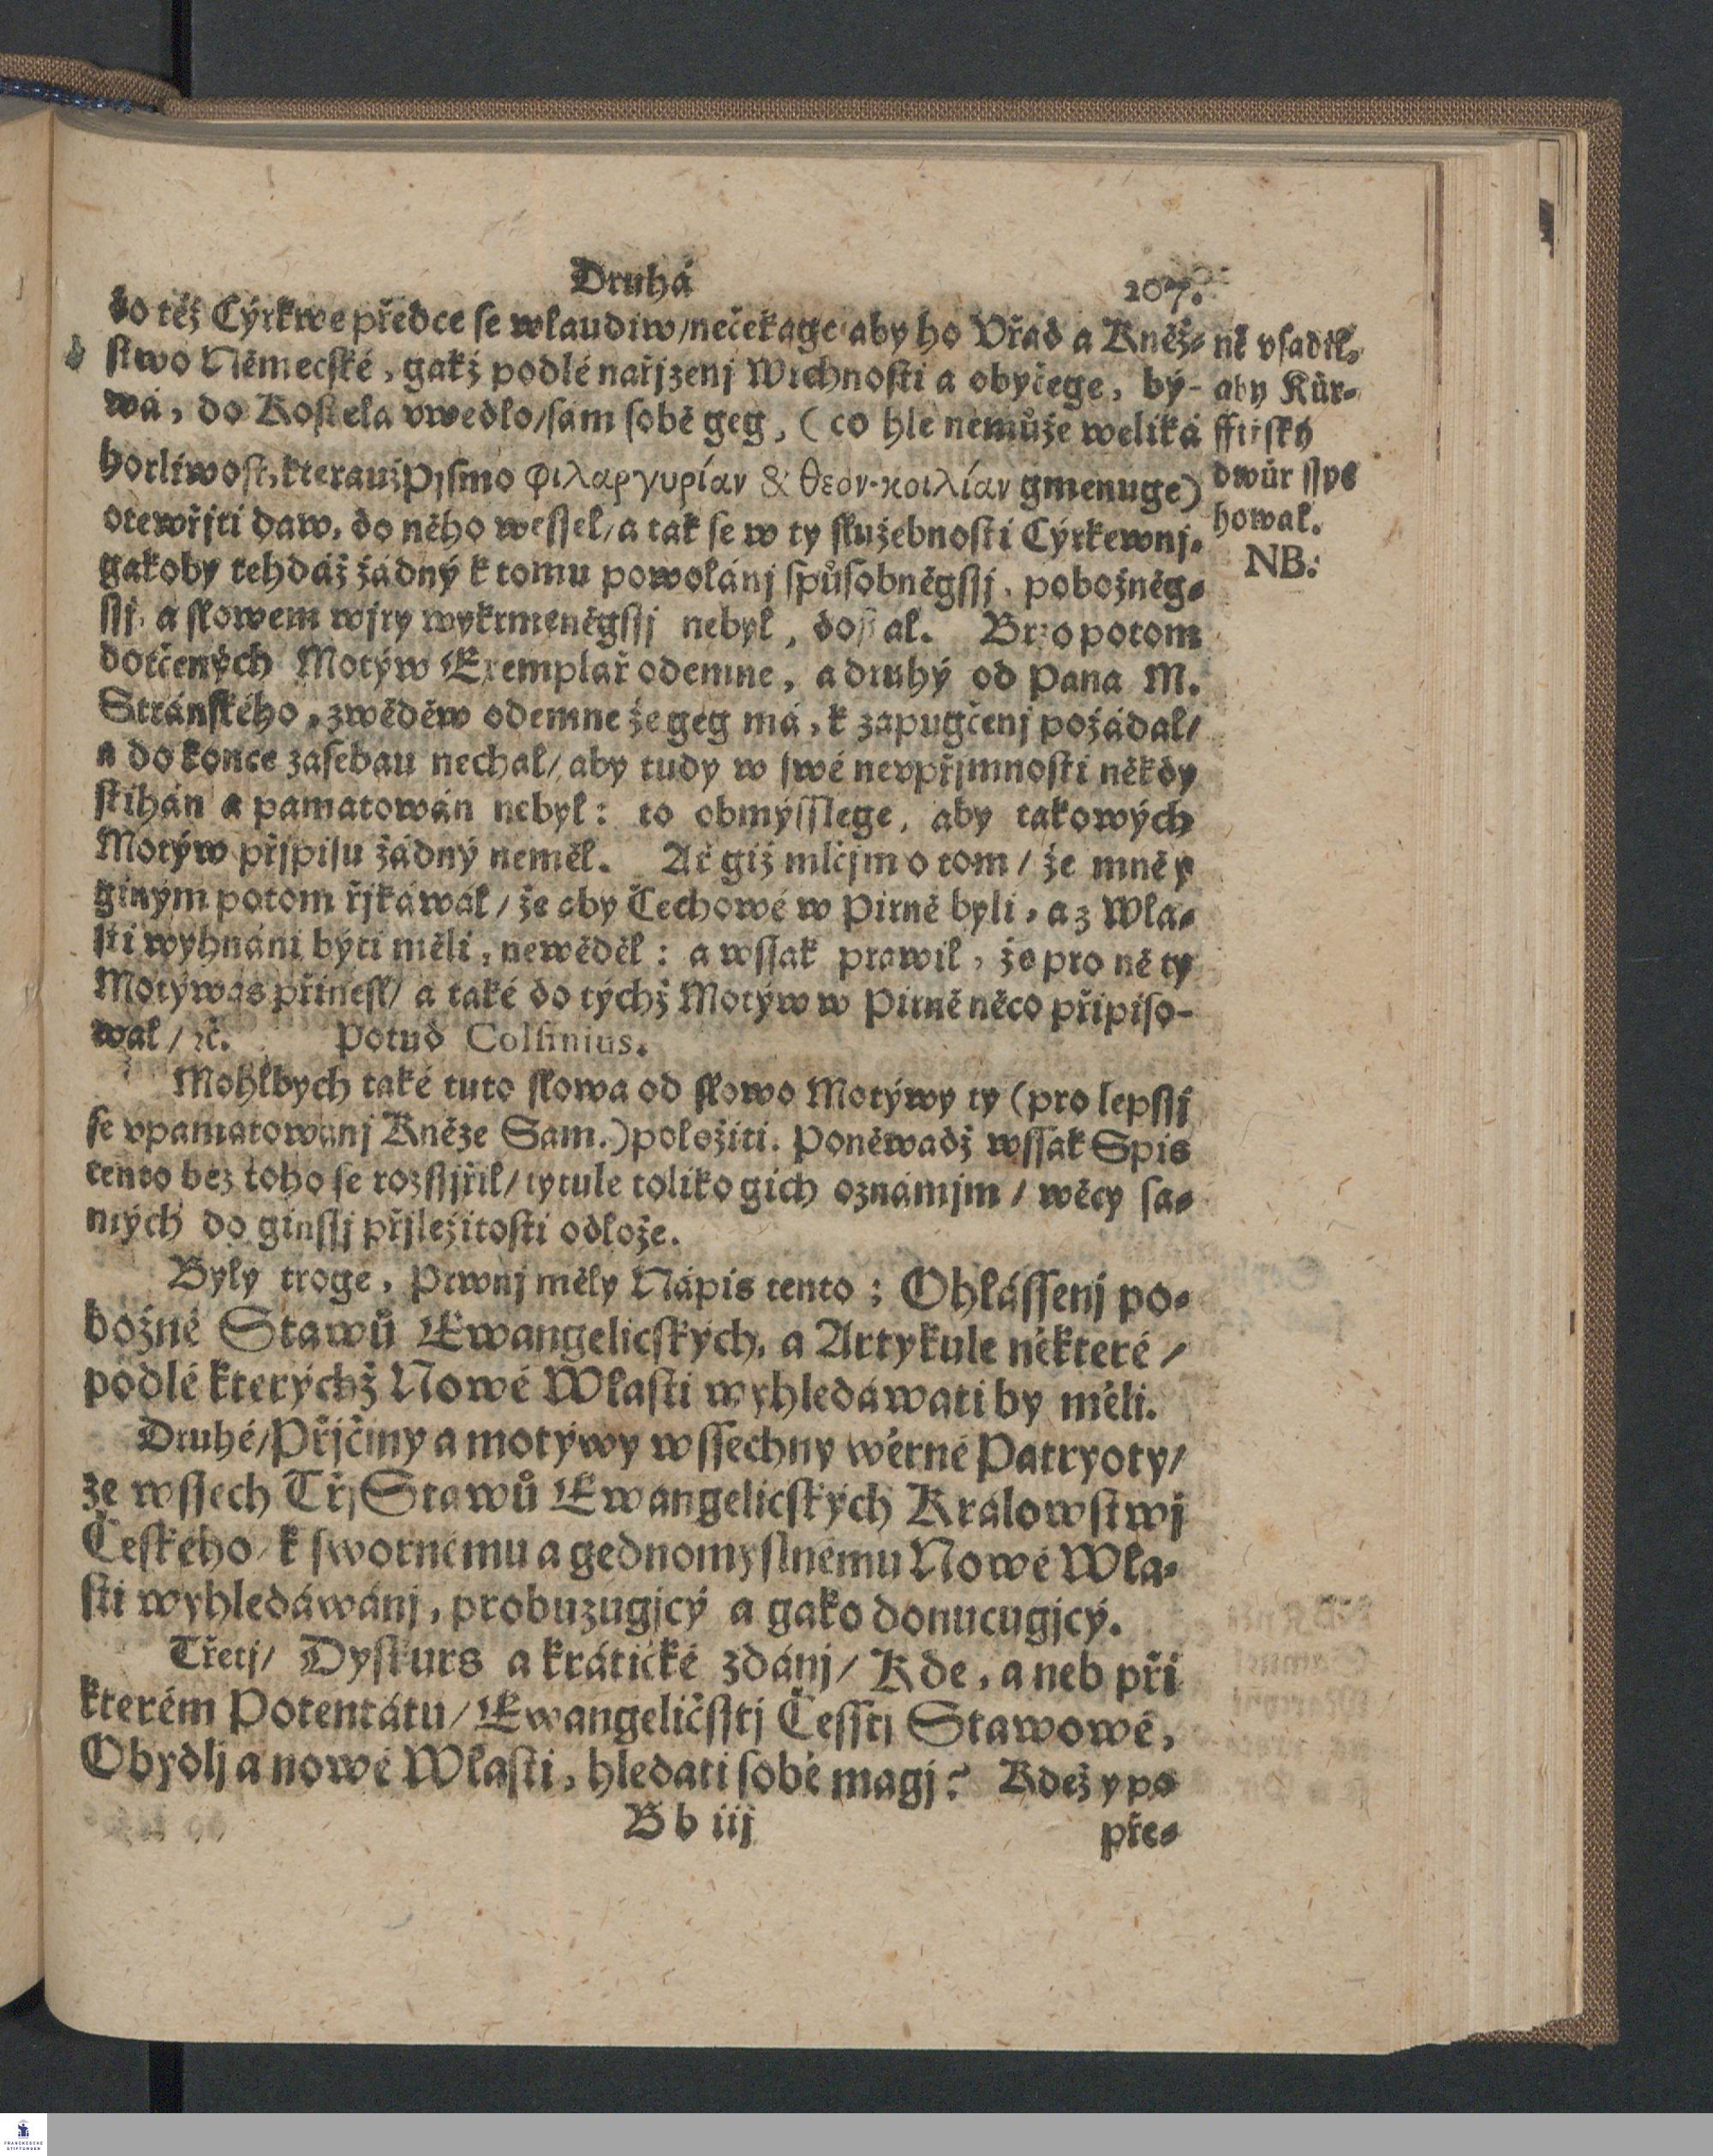 Druhá 207.
do též Cýrkwe předce se wlaudiw/nečekage aby ho Vřad a Kněž-
stwo Německé, gakž podlé nařjzenj Wrchnosti a obyčege, bý-
wá, do Kostela vwedlo/sám sobě geg, (co hle nemůže weliká
horliwost, kterauž Pjsmo φιλαργυρίαν & θεον-κοιλίαν gmenuge)
otewřjti daw, do něho wessel/a tak se w ty služebnosti Cýrkewnj,
gakoby tehdáž žádný k tomu powolánj spůsobněgssj, pobožněg-
ssj, a slowem wjry wykrmeněgssj nebyl, dostal. Brzo potom
dotčených Motýw Exemplař odemne, a druhý od Pana M.
Stránského, zwěděw odemne že geg má, k zapugčenj požádal/
a do konce za sebau nechal/ aby tudy w swé nevpřjmnosti někdy
stihán a pamatowán nebyl: to obmýsslege, aby takowých
Motýw přjpisu žádný neměl. Ač giž mlčjm o tom / že mně y
giným potom řjkáwal/ že aby Čechowé w Pirně byli, a z Wla-
sti wyhnáni býti měli, newěděl: a wssak prawil, že pro ně ty
Motýwas přinesl/ a také do týchž Motýw w Pirně něco připiso-
wal / ꝛč. Potud Colsinius.
Mohlbych také tuto slowa od slowo Motýwy ty (pro lepssj
se vpamatowanj Kněze Sam.) položiti. Poněwadž wssak Spis
tento bez toho se rozssjřil/ tytule toliko gich oznámjm / wěcy sa-
mých do ginssj přjležitosti odlože.
Byly troge, Prwnj měly Nápis tento: Ohlássenj po-
božné Stawů Ewangelických, a Artykule některé /
podlé kterýchž Nowé Wlasti wyhledáwati by měli.
Druhé/Přjčiny a motýwy wssechny wěrné Patryoty/
ze wssech Třj Stawů Ewangelických Králowstwj
Českého/ k swornému a gednomyslnému Nowé Wla-
sti wyhledáwánj, probuzugjcý a gako donucugjcý.
Třetj/ Dyskurs a krátičké zdánj/ Kde, a neb při
kterém Potentátu/ Ewangeličsstj Čessstj Stawowé,
Obydlj a nowé Wlasti, hledati sobě magj? Kdež y po
B b iij pře-
ně vsadil,
aby Kůr-
ffirský
dwůr sspe
howal.
NB.